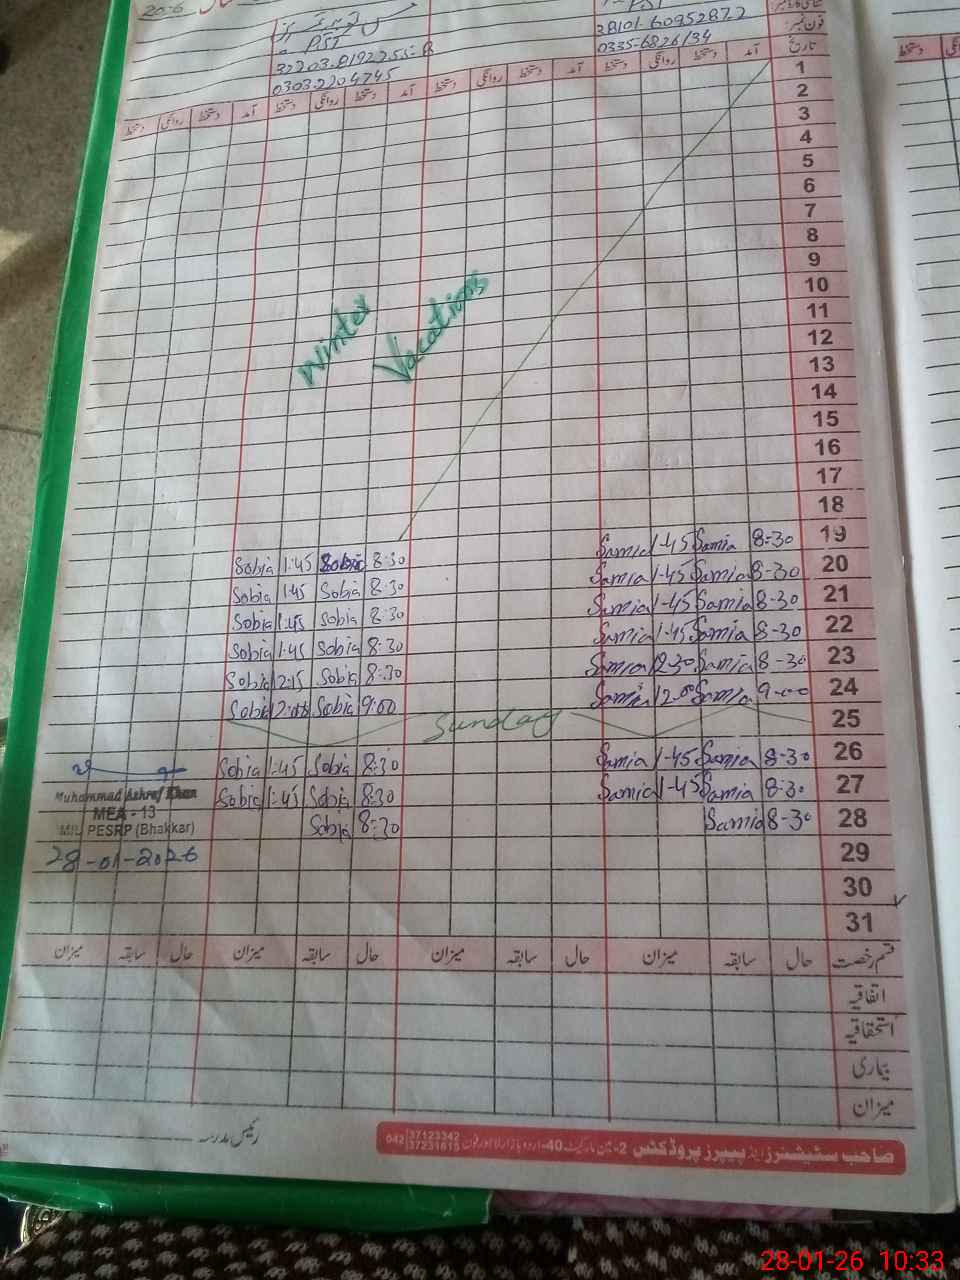 2026 سال
PST
PST
38101-6095287-2
32203-8192255-8
0335-6826134
03032204745
فون نمبر:
تاریخ آمد دستخط روانگی دستخط آمد دستخط روانگی دستخط آمد دستخط روانگی دستخط آمد دستخط روانگی دستخط
1
2
3
4
5
6
7
8
9
10
11
12
13
14
15
16
17
18
Winter Vacations
19 8-30 Samia 1-45 Samia 8:30 Sobia 1:45 Sobia
20 8-30 Samia 1-45 Samia 8:30 Sobia 1:45 Sobia
21 8-30 Samia 1-45 Samia 8:30 Sobia 1:45 Sobia
22 8-30 Samia 1-45 Samia 8:30 Sobia 1:45 Sobia
23 8-30 Samia 12-30 Samia 8:30 Sobia 12:15 Sobia
24 9-00 Samia 12-00 Samia 9:00 Sobia 12:00 Sobia
25 Sunday
26 8-30 Samia 1-45 Samia 8:30 Sobia 1:45 Sobia
27 8-30 Samia 1-45 Samia 8:30 Sobia 1:45 Sobia
28 8-30 Samia 8:30 Sobia
Muhammad Ashraf Khan
MEA - 13
MIL PESRP (Bhakkar)
28-01-2026
29
30
31
قسم رخصت حال سابقہ میزان حال سابقہ میزان حال سابقہ میزان حال سابقہ میزان
اتفاقیہ
استحقاقیہ
بیماری
میزان
رئیس مدرسہ
صاحب سٹیشنرز اینڈ پیپرز پروڈکٹس 2- مارکیٹ 40-اردو بازار لاہور فون 042 37123342 37231615
28-01-26 10:33